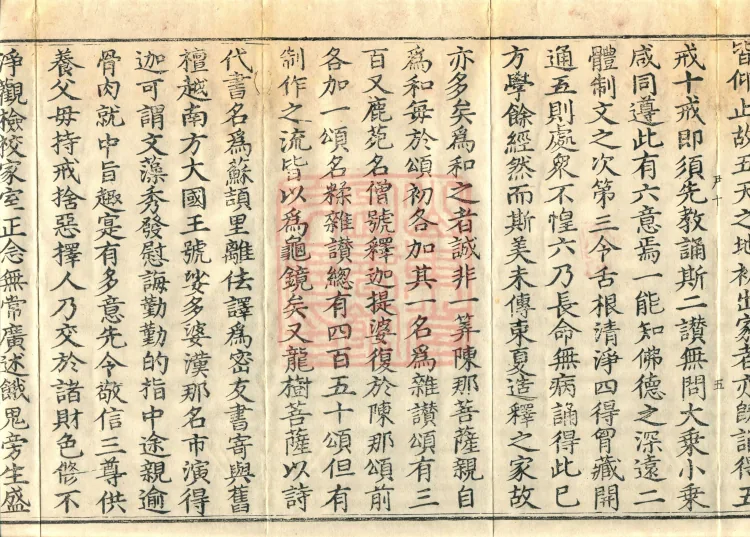 皆仰止故五天之地初出家者亦既誦得五
尹十 五
戒十戒即須先教誦斯二讚無問大乘小乘
咸同遵此有六意焉一能知佛德之深遠二
體制文之次第三令舌根清淨四得胷藏開
通五則處衆不惶六乃長命無病誦得此已
方學餘經然而斯美未傳東夏造釋之家故
亦多矣爲和之者誠非一筭陳那菩薩親自
爲和每於頌初各加其一名爲雜讚頌有三
百又鹿苑名僧號釋迦提婆復於陳那頌前
各加一頌名糅雜讚總有四百五十頌但有
制作之流皆以爲龜鏡矣又龍樹菩薩以詩
代書名爲蘇頡里離佉譯爲密友書寄與舊
檀越南方大國王號娑多婆漢那名市演得
迦可謂文藻秀發慰誨勤勤的指中途親逾
骨肉就中旨趣寔有多意先令敬信三尊供
養父母持戒捨惡擇人乃交於諸財色修不
淨觀檢校家室正念無常廣述餓鬼旁生盛